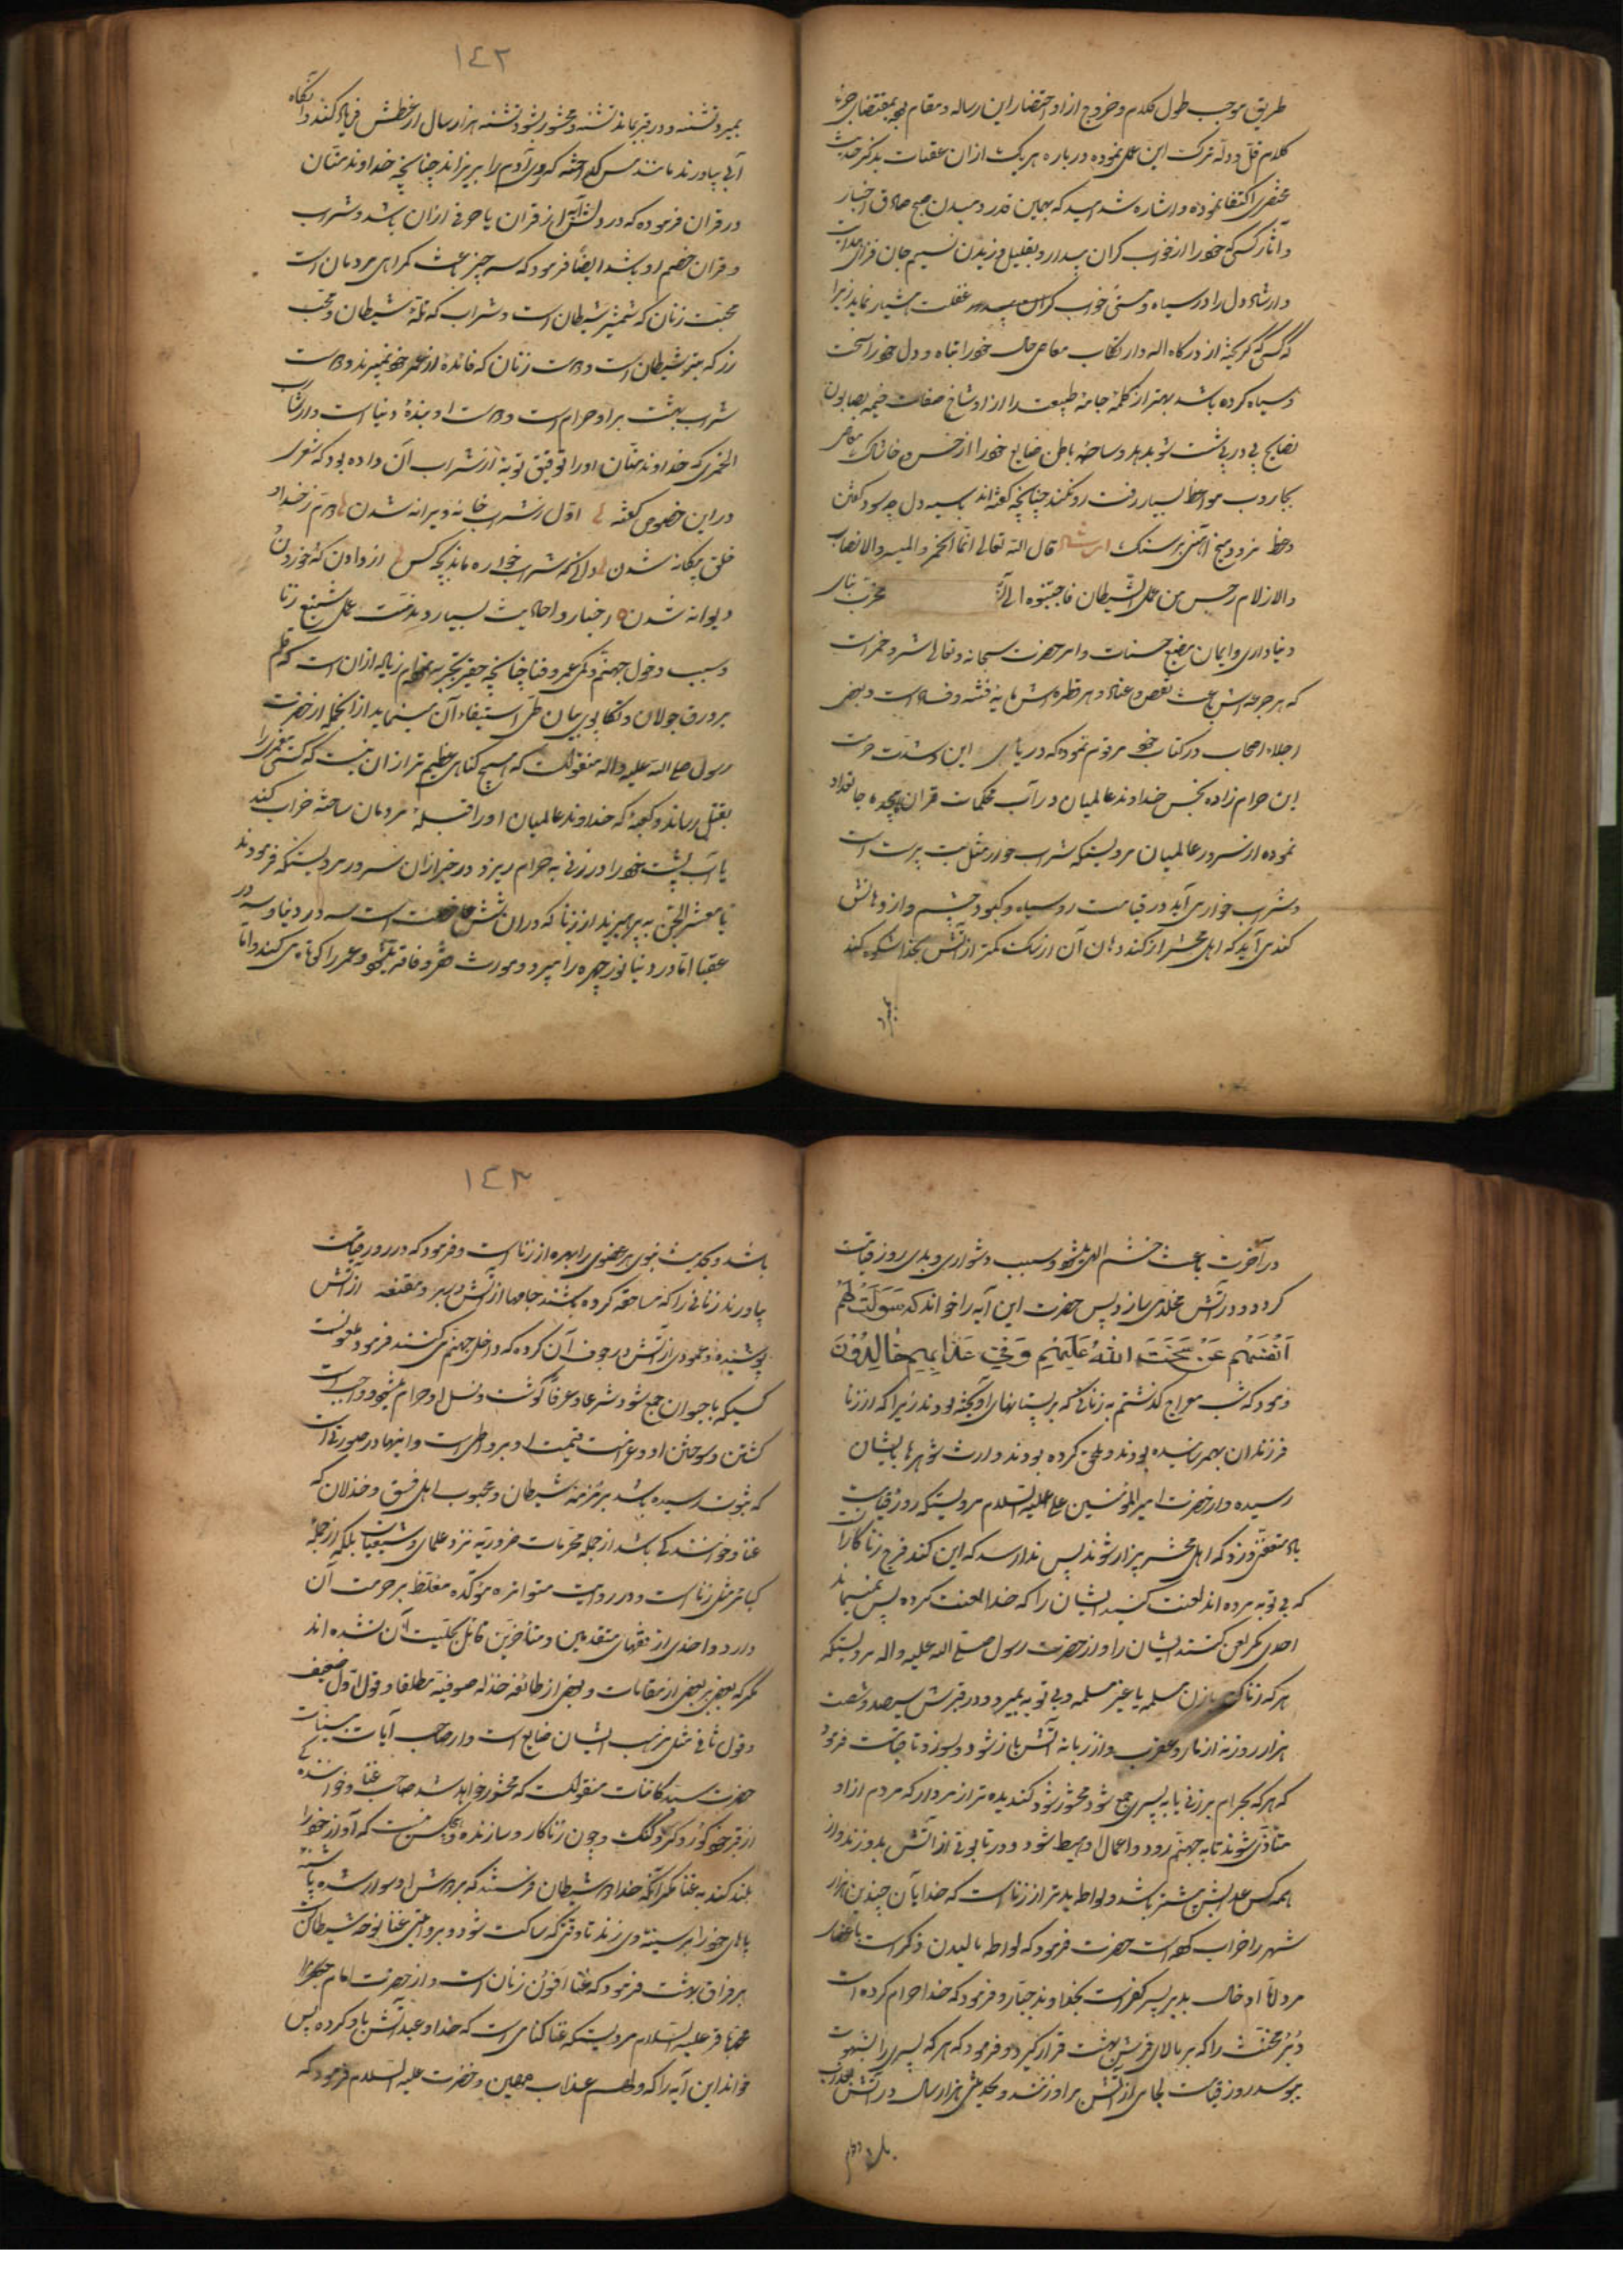 طریق موجب طول کلام و خروج از اختصار این رساله و مقام بود بمقتضای خیر
کلام قل و دل ترک این عمل نموده درباره هریک از ان عقبات بذکر حدیث
مختصری اکتفا نموده و اشاره شد امید که بهمین قدر دمیدن صبح صادق اخبار
و آثار کسی خود را از خواب کران بیدار و بقلیل وزیدن نسیم جان فزای هدایت
و ارشاد دل را در سیاه مستی خواب کران غفلت هشیار نماید زیرا
که کسی که کریخته از درکاه اله و ارتکاب معاصی حال خود را تباه و دل خود را سخت
و سیاه کرده باشد بهتر از کلمه جامه طبیعت را از اوساخ صفات ذمیمه بصابون
نصایح پی در پی شست شو بدهد و ساحه باطن ضایع خود را از خس و خاشاک معاصی
بجاروب مواعظ بسیار رفت رو نکند چنانچه کفته اند باسیه دل چه سود کفتن
وعظ نرود میخ آهنین بر سنک قال الله تعالی انما الخمر و المیسر و الانصاب
و الازلام رجس من عمل الشیطان فاجتنبوه الی آلایه مخرب بنای
دنیاداری و ایمان مضیع حسنات و امر حضرت سبحانه و تعالی شرب خمر است
که هر جرعه اش باعث نقص و عناد و هر قطره اش مایه فتنه و فساد است و بعضی
اجلاء اصحاب در کتاب خود مرقوم نموده که در باب این و شدت حرمت
این حرام زاده نجس خداوند عالمیان در آب محکمات قران پیچیده جا تعداد
نموده از سرور عالمیان مرویستکه شراب خوار مثل بت پرست است
و شراب خوار می آید در قیامت رو سیاه و کبود چشم و از دهانش
کندی آید که اهل محشر از کند دهان آن از یک کمتر از آتش بخدا شکوه کند
بمیرد
١٤٢
بمیرد تشنه و در قبر بماند تشنه و محشور شود تشنه هزار سال از عطش فریاد کند و آنکاه
آبی بیاورند مانند مس کداخته که روی آدم را بریزاند چنانچه خداوند منان
در قران فرموده که در دلش آیه از قران یا حرفی از ان باشد و شراب
و قران خصم او باشد ایضا فرمود که سه چیز باعث کمراهی مردمان است
محبت زنان که شمشیر شیطان است و شراب که تله شیطان و محب
زر که تیر شیطان است و دوست زنان که فائده از عمر خود نمیبرند و دوست
شراب بهشت بر او حرام است و دوست او بنده دنیا است و از شارب
الخمری که خداوند منان او را توفیق توبه از شراب آن داده بود که شعری
در این خصوص کفته اول شراب خانه ویرانه شدن دوم ز خدا و
خلق بیکانه شدن دانی که شراب خواره ماند بچه کس از دادن که خوردن و
دیوانه شدن و اخبار و احادیث بسیار و مذمت عمل شنیع زنا
و سبب دخول جهنم و کمی عمر و فنا چنانچه حقیر تجربه نموده ام زیاده از ان است که قلم
بر ورق جولان و تکاپوی بیان طی استیفاء آن مینماید از انجمله از حضرت
رسول صلی الله علیه و اله منقولست که هیچ کناهی عظیم تر از ان نیست که کسی پیغمبری را
بقتل رساند و کعبه که خداوند عالمیان او را قبله مردمان ساخته خراب کند
یا آب پشت خود را در زنی به حرام ریزد در خبر از ان سرور مرویستکه فرمودند
یا معشر الخلق بپرهیزید از زنا که در ان شش خصلت است سه در دنیا و سه در
عقبا اما در دنیا نور چهره را میبرد و مورث فقر و فاقه میشود و عمر را کوتاه میکند و اما
در آخرت باعث خشم الهی میشود و سبب دشواری و بدی روز قیامت
کردد و در آتش مخلدی سازد پس حضرت این آیه را خواند که سولت لهم
انفسهم عن سخت الله علیهم و فی عذابهم خالدون
فرمود که شب معراج کذشتم به زنانی که بر پستانهای آویخته بودند زیرا که از زنا
فرزندان بهمرسانیده بودند و ملحق کرده بودند و ارث شوهرها بایشان
رسیده و از حضرت امیرالمؤمنین علیه السلام مرویستکه روز قیامت
باد متعفنی وزد که اهل محشر بیزار شوند پس ندا رسد که این کند فرج زنا کاران است
که بی توبه مرده اند لعنت کنید ایشان را که خدا لعنت کرده پس نمیماند
احدی مکر لعن کنند ایشان را و از حضرت رسول صلی الله علیه و اله مرویستکه
هر که زنا کند با زن مسلمه یا غیر مسلمه و بی توبه بمیرد و در قبرش سیصد و شصت
هزار روزنه از مار و عقرب و از زبانه آتش باز شود و بسوزد تا قیامت فرمود
که هر که بحرام بر زنی یا به پسری جمع شود محشور شود کندیده تر از مردار که مردم از او
متأذی شوند تا به جهنم رود و اعمال او حبط شود و در تابوتی از آتش بدوزند و از
همه کس عذابش بیشتر باشد و لواط بدتر از زنا است که خدا بآن چندین هزار
شهر را خراب کرده است حضرت فرمود که لواط مالیدن ذکر است
مرد اما ادخال بدبر پسر کفر است بخداوند جبار و فرمود که خدا حرام کرده است
دبر مخنث را که بر بالای فرش بهشت قرار کیرد و فرمود که هر که پسری را بشهوت
ببوسد روز قیامت لجامی از آتش بر او زنند و بحدیثی هزار سال در آتش معذب
باشد
١٤٣
باشد و بحدیث نبوی هر عضوی را بهره از زنا است و فرمود که در روز قیامت
بیاورند زنانی را که مساحقه کرده باشند جامها از آتش در بر و مقنعه از آتش
پوشیده و عمودی از آتش در جوف آن کرده که داخل جهنم میکنند فرمود ملعونست
کسیکه با حیوان جمع شود شرعا و عرفا کوشت و نسل او حرام میشود و واجب است
کشتن و سوختن او و غرامت قیمت او بر واطی است و اینها در صورتی است
که بثبوت رسیده باشد مزمزمه شیطان و محبوب اهل فسق و خذلان که
غنا و خوانندکی باشد از جمله محرمات ضروریه نزد علمای شیعیان بلکه از جمله
کبائر مثل زنا است و در روایت متواتره مؤکده مغلظ بر حرمت آن
دارد و احدی از فقهای متقدمین و متأخرین قائل بحلیت آن نشده اند
مکر که بعضی بر بعضی از مقامات و بعضی از طائفه خذله صوفیه مطلقا و قول اول ضعیف
و قول ثانی مثل مذهب ایشان ضایع است و از صاحب آیات بینات
حضرت سید کائنات منقولست که محشور خواهد شد صاحب غنا و خواننده
از قبر خود کور و کر و کنک و چون زناکار و سازنده و هیچکس نیست که آواز خود را
بلند کند به غنا مکر آنکه خدا دو شیطان فرستد که بر دوش او سوار شده پاشنه
پاهای خود را بر سینه وی زند تا وقتی که ساکت شود و بروایتی غنا نوحه شیطان است
بر فراق بهشت فرمود که غنا افسون زنان است و از حضرت امام
محمد باقر علیه السلام مرویستکه غنا کناهی است که خدا وعید آتش باو کرده پس
خواند این آیه را که و لهم عذاب مهین و حضرت علیه السلام فرمود که